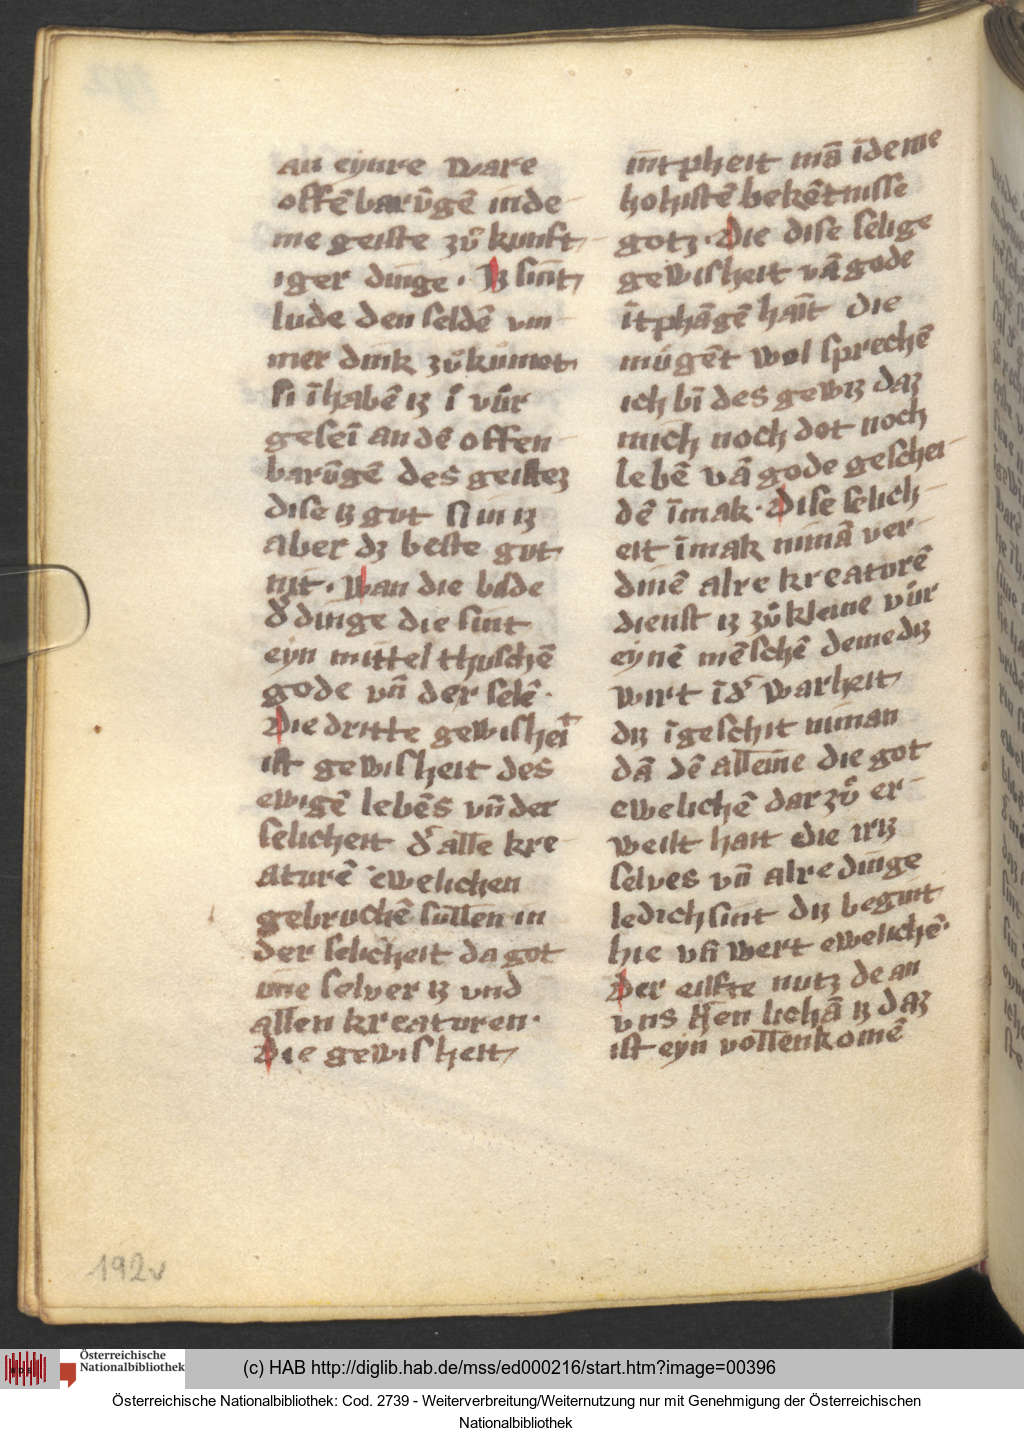 an eynre ware
offēbarūgē inde-
me geiste zuͦ kunft-
iger dinge · Iz sint
lude den seldē vm-
mer dink zuͦ kūmet
si īhabē iz ī vuͦr
geseī an dē offen-
barūgē des geistez
dise iz gut si in iz
aber dz beste gut
nit · Wan die bilde
dͤ dinge die sint
eyn mittel thuschē
gode vn̄ der selē ·
Die dritte gewisheit
ist gewisheit des
ewigē lebēs vn̄ der
selicheit dͤ alle kre-
aturē ewelichen
gebruchē sullen in
der selicheit da got
ime selver iz vnd
allen kreaturen ·
Die gewisheit
intpheit mā īdeme
hohistē bekētnisse
gotz · Die dise selige
gewisheit vā gode
ītphāgē hait die
mugēt wol sprechē
ich bī des gewiz daz
mich noch dot noch
lebē vā gode geschei-
dē īmak · Dise selich-
eit īmak nimā ver-
dinē alre kreaturē
dienst iz zuͦ kleine vuͦr
eynē mēschē deme diz
wirt ī dͤ warheit
diz īgeschit niman
dā dē alleine die got
ewelichē dar zuͦ er-
weilt hait die irz
selves vn̄ alre dinge
ledich sint diz begint
hie vn̄ wert ewelichē ·
Der eilfte nutz de an
vns hͤen lichā iz daz
ist eyn vollenkomē
192v
Österreichische
Nationalbibliothek
(c) HAB http://diglib.hab.de/mss/ed000216/start.htm?image=00396
Österreichische Nationalbibliothek: Cod. 2739 - Weiterverbreitung/Weiternutzung nur mit Genehmigung der Österreichischen
Nationalbibliothek